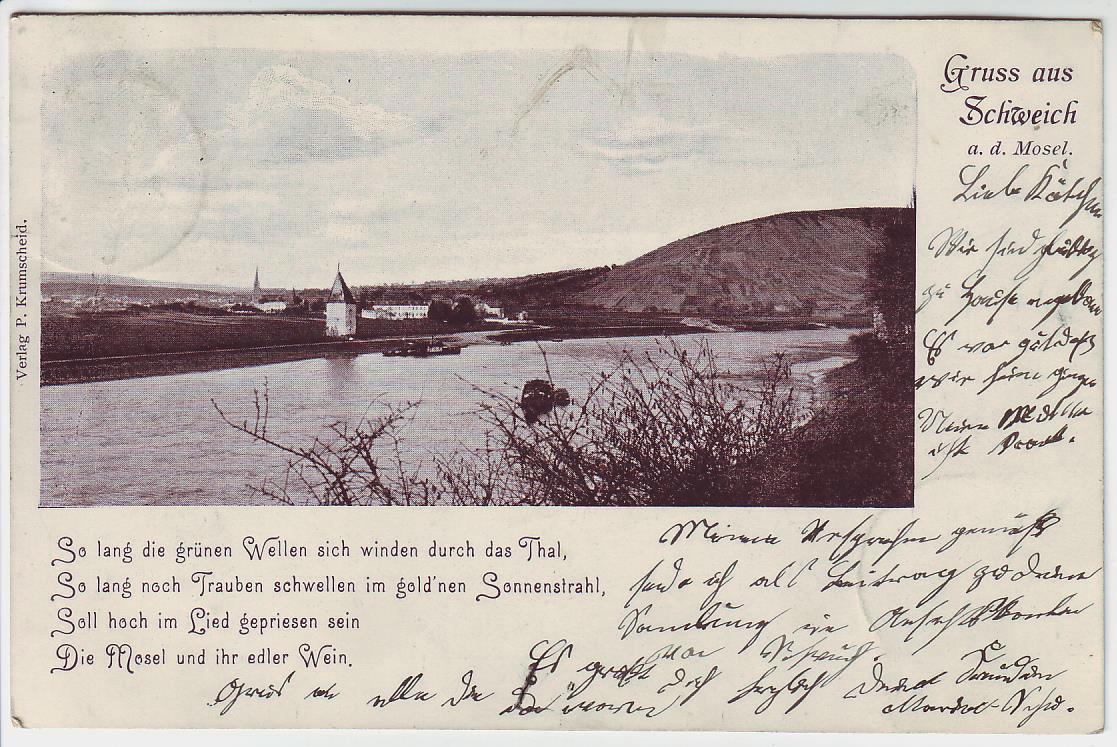 Gruss aus
Schweich
a. d. Mosel.
Verlag P. Krumscheid.
Liebe Kätchen
Wir sind
zu Hause
Es war gut daß
wir heim gingen
Meine
ist krank.
So lang die grünen Wellen sich winden durch das Thal,
So lang noch Trauben schwellen im gold'nen Sonnenstrahl,
Soll hoch im Lied gepriesen sein
Die Mosel und ihr edler Wein.
Meinem Versprechen gemäß
sende ich als Beitrag zu deiner
Sammlung eine Ansichtskarte
von Schweich.
Es grüßt Dich herzlich Deine Freundin
Gruß an alle die